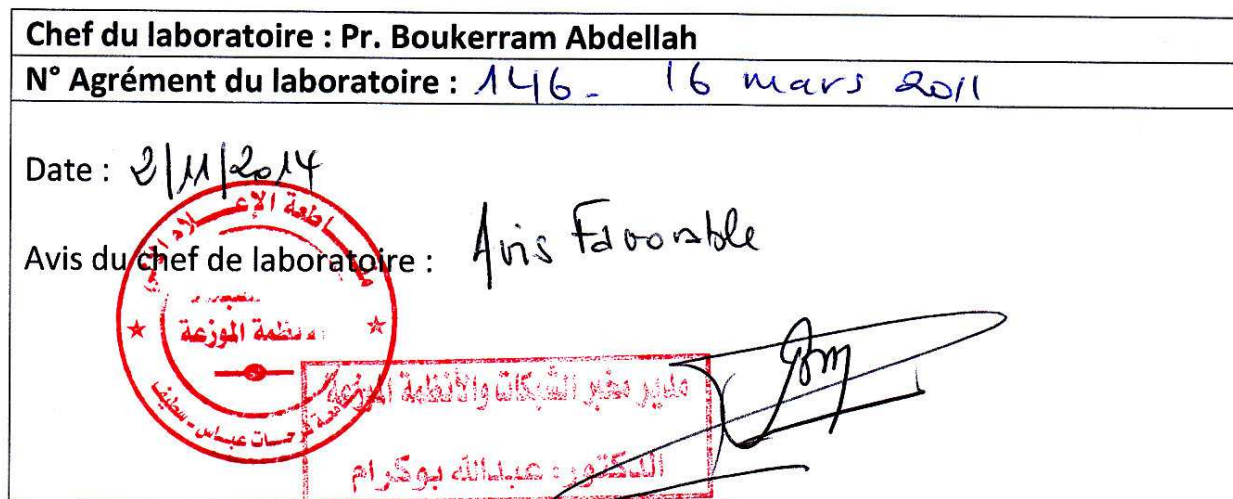 Chef du laboratoire : Pr. Boukerram Abdellah
N° Agrément du laboratoire : 146_ 16 mars 2011
Date : 2/11/2014
Avis du chef de laboratoire : Avis Favorable
الأنظمة الموزعة
جامعة فرحات عباس - سطيف
مدير مخبر الشبكات والأنظمة الموزعة
الدكتور : عبدالله بوكرام